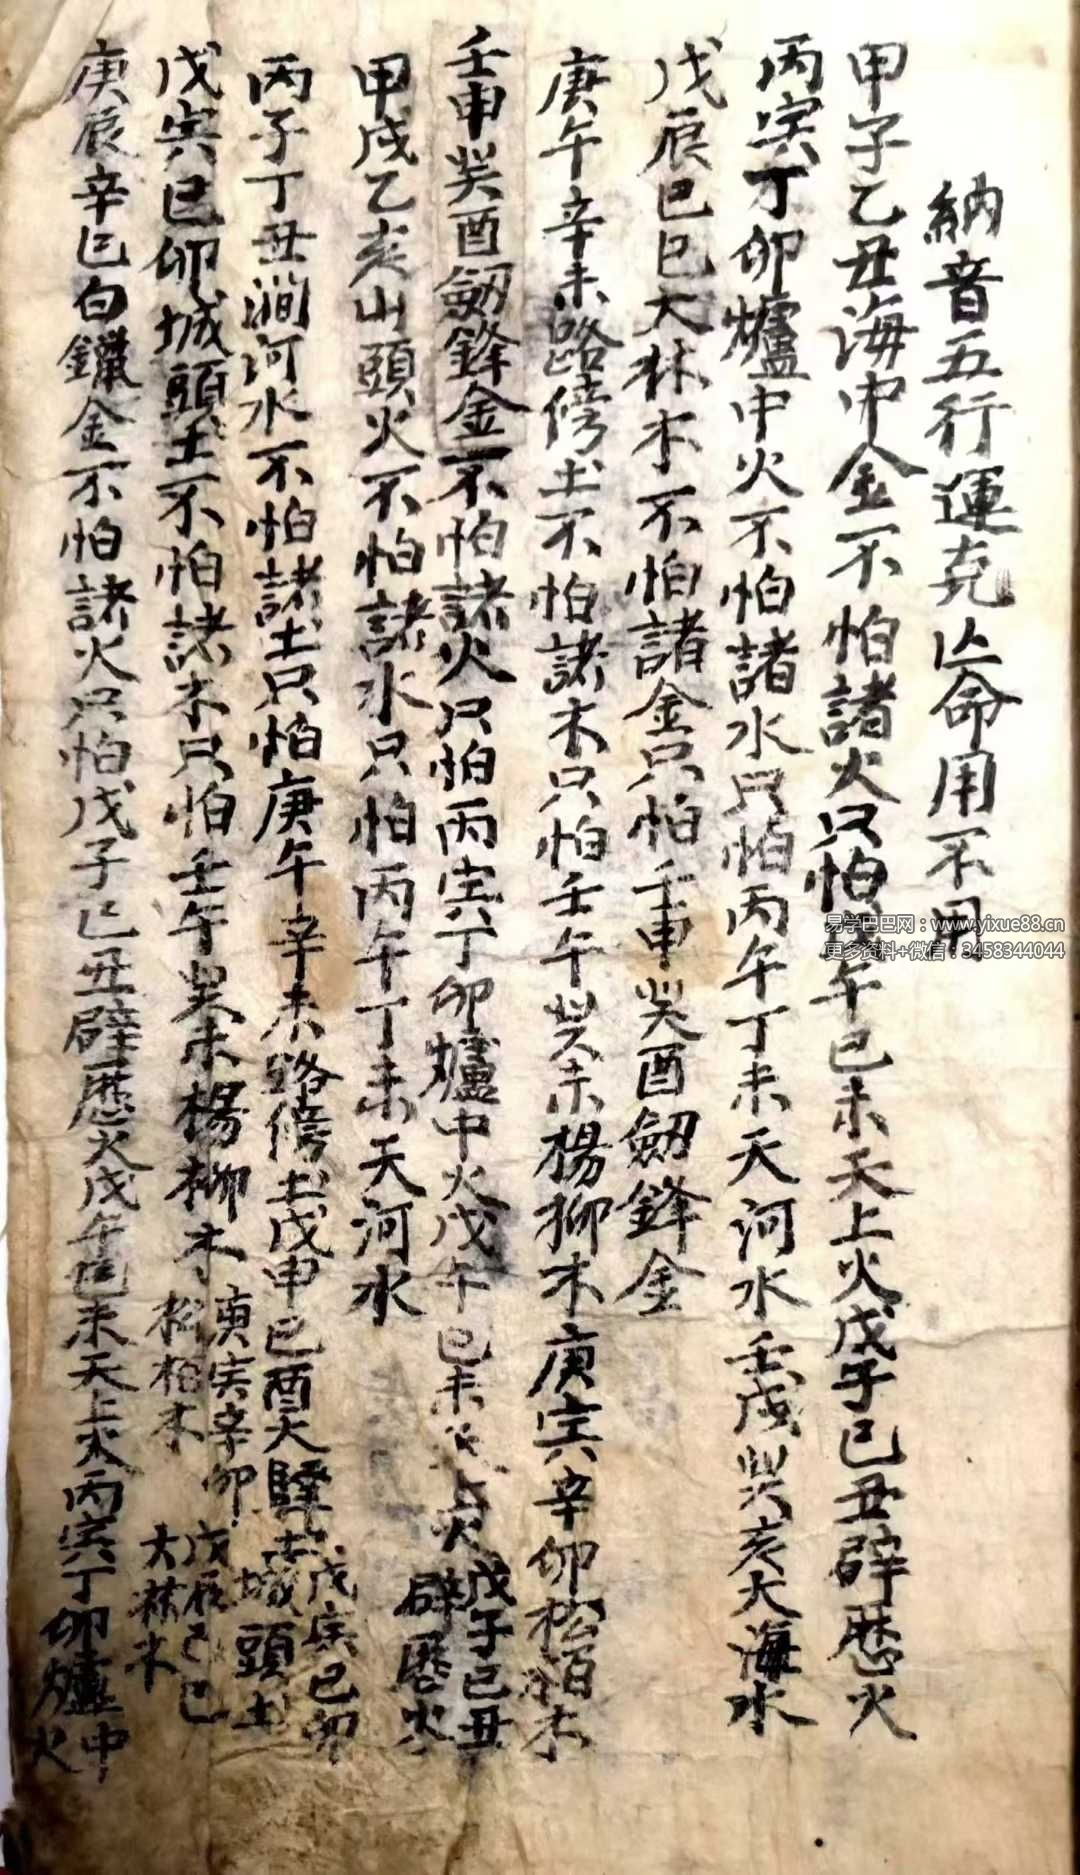 納音五行運克亾命用不用
甲子乙丑海中金不怕諸火只怕戊午己未天上火戊子己丑辟歷火
丙寅丁卯爐中火不怕諸水只怕丙午丁未天河水壬戌癸亥大海水
戊辰己巳大林木不怕諸金只怕壬申癸酉劒鋒金
庚午辛未路傍土不怕諸木只怕壬午癸未楊柳木庚寅辛卯松栢木
壬申癸酉劒鋒金不怕諸火只怕丙寅丁卯爐中火戊午己未天上火戊子己丑辟歷火
甲戌乙亥山頭火不怕諸水只怕丙午丁未天河水
丙子丁丑澗河水不怕諸土只怕庚午辛未路傍土戊申己酉大驛土戊寅己卯城頭土
戊寅己卯城頭土不怕諸木只怕壬午癸未楊柳木庚寅辛卯松柏木戊辰己巳大林木
庚辰辛巳白鑞金不怕諸火只怕戊子己丑辟歷火戊午己未天上火丙寅丁卯爐中火
易学巴巴网：www.yixue88.cn
更多资料+微信：3458344044